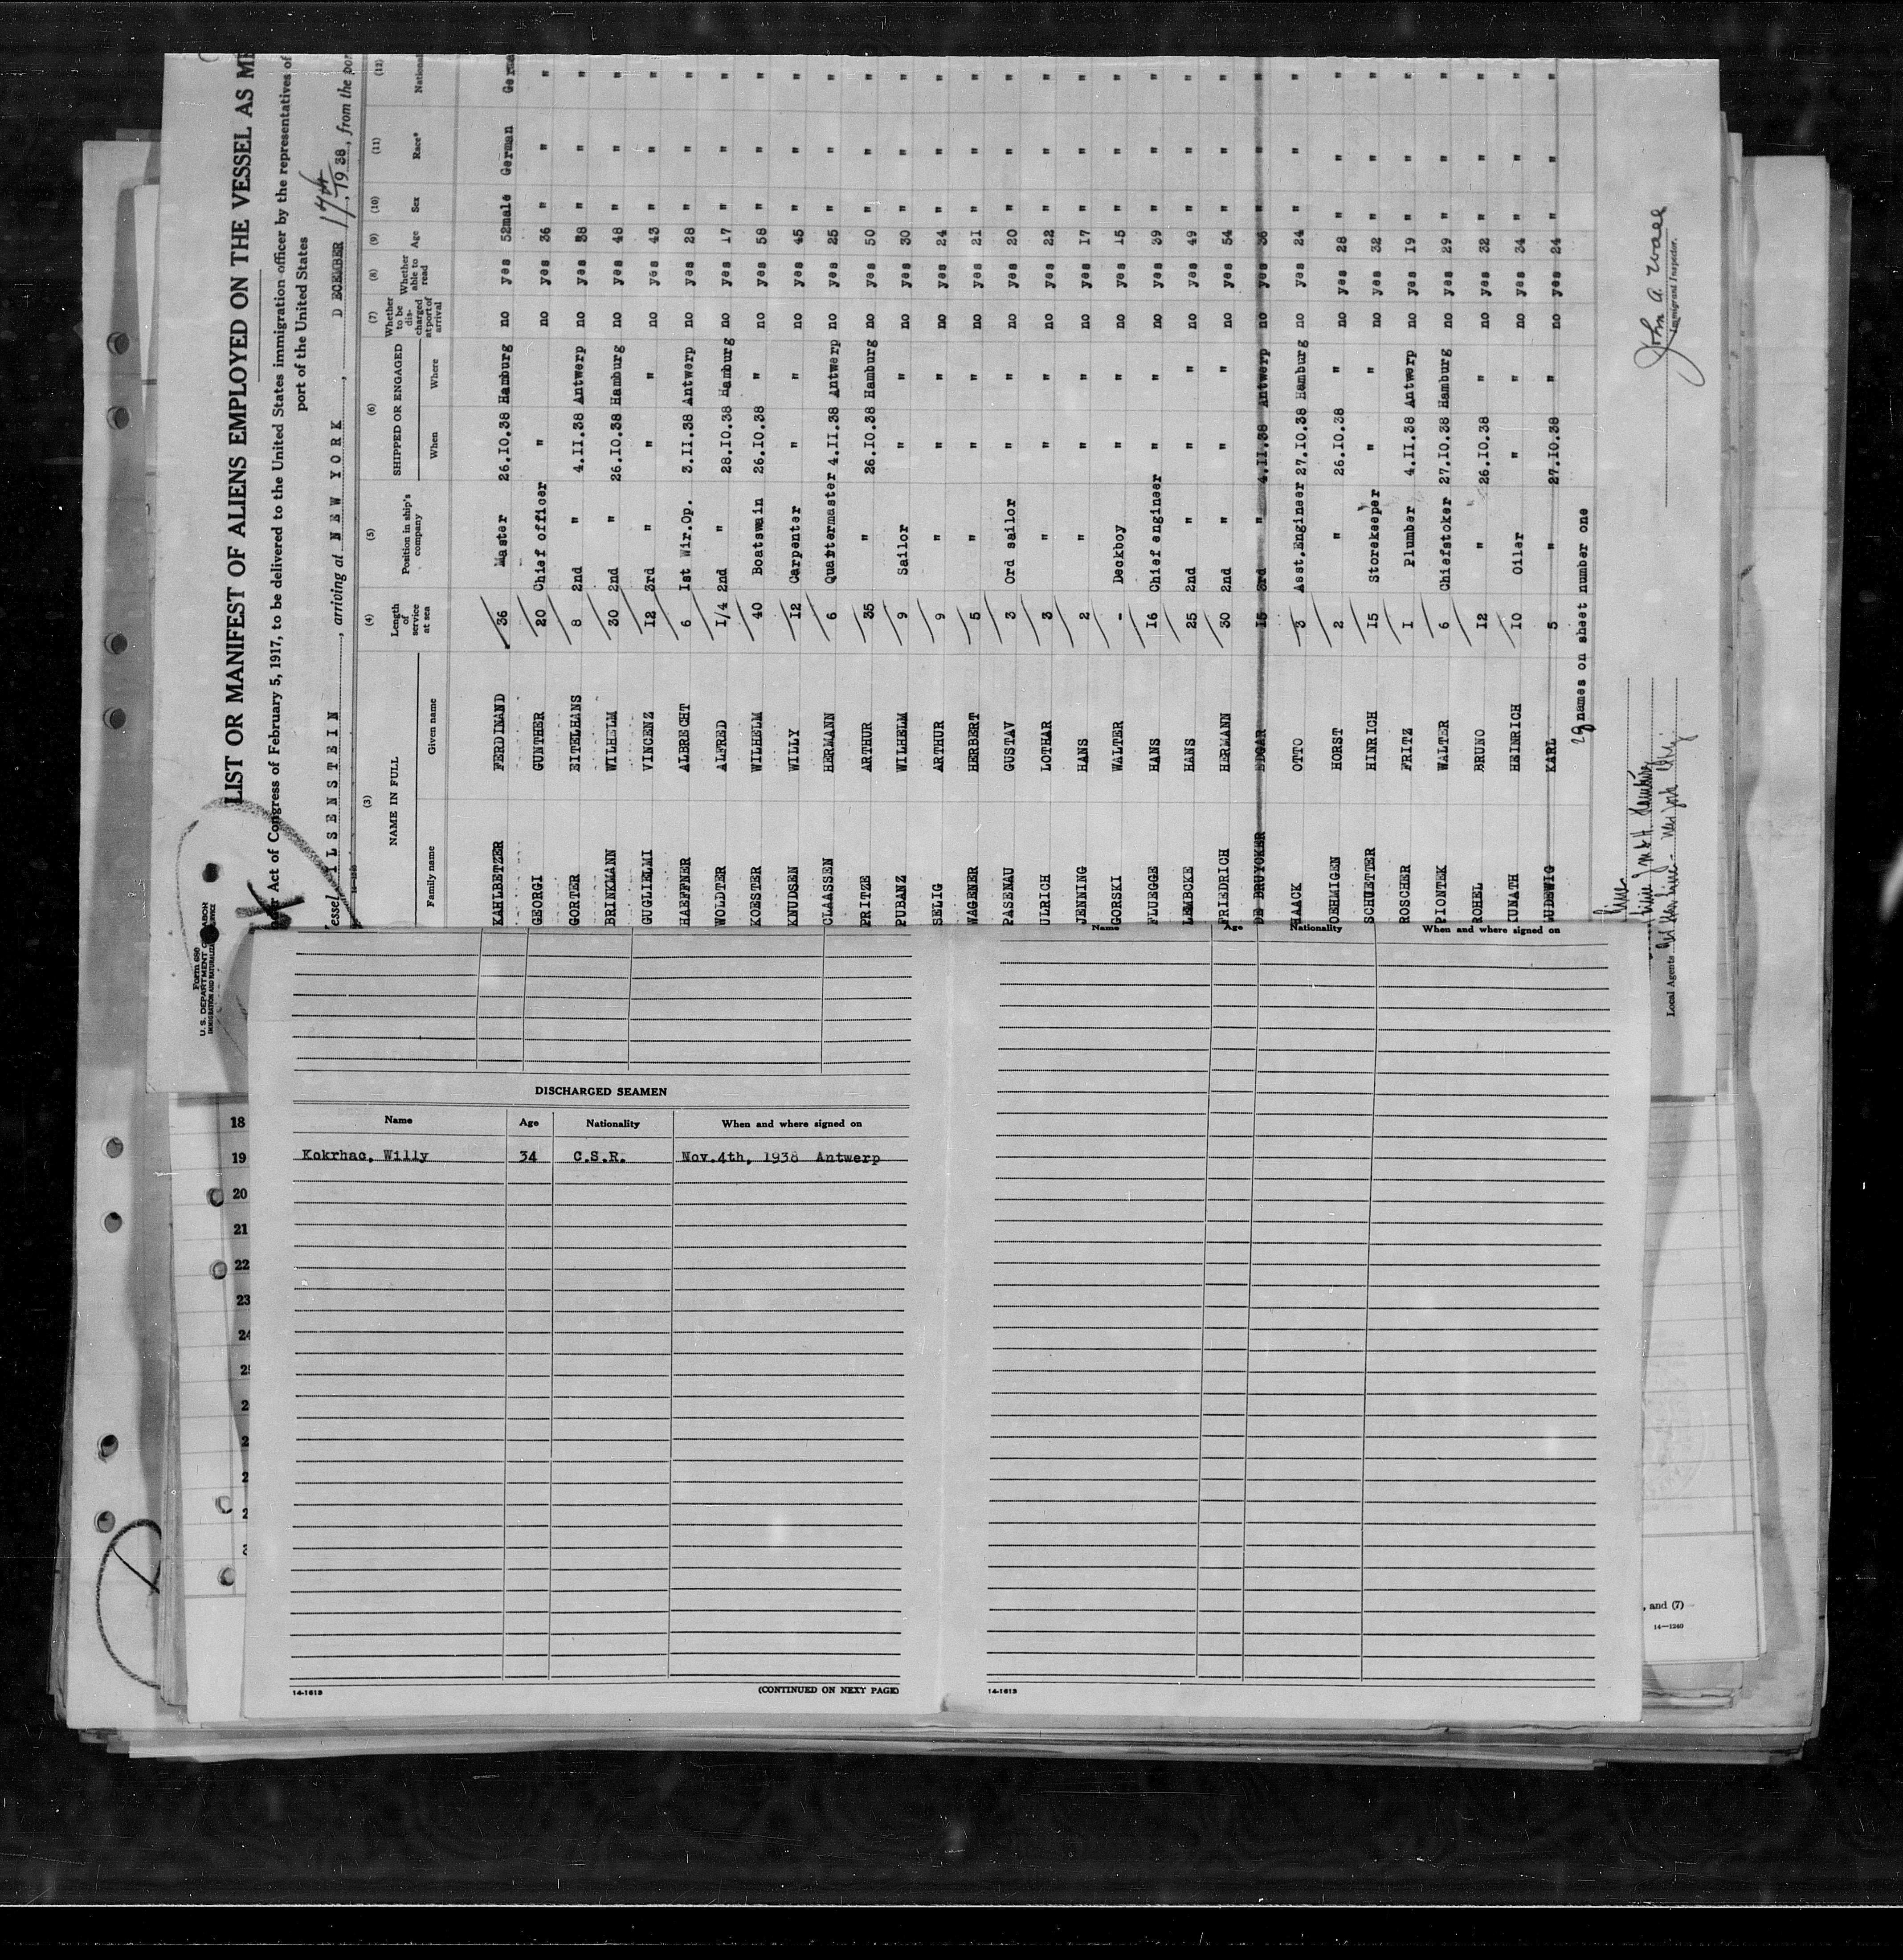 Form 686
U. S. DEPARTMENT OF LABOR
IMMIGRATION AND NATURALIZATION SERVICE
LIST OR MANIFEST OF ALIENS EMPLOYED ON THE VESSEL AS ME
Act of Congress of February 5, 1917, to be delivered to the United States immigration officer by the representatives of
port of the United States
essel ILSENSTEIN, arriving at NEW YORK, DECEMBER 17th, 1938, from the por
(3) (4) (5) (6) (7) (8) (9) (10) (11) (12)
NAME IN FULL Length of service at sea Position in ship's company SHIPPED OR ENGAGED Whether to be dis- charged at port of arrival Whether able to read Age Sex Race* National
Family name Given name When Where
KAHLBETZER FERDINAND 36 Master 26.10.38 Hamburg no yes 52 male German Germa
GEORGI GUNTHER 20 Chief officer " no yes 36 " " "
GORTER EITELHANS 8 2nd " 4.II.38 Antwerp no yes 38 " " "
BRINKMANN WILHELM 30 2nd " 26.IO.38 Hamburg no yes 48 " " "
GUGLIELMI VINCENZ 12 3rd " " " no yes 43 " " "
HAEFFNER ALBRECHT 6 Ist Wir.Op. 3.II.38 Antwerp no yes 28 " " "
WOLDTER ALFRED 1/4 2nd " 28.IO.38 Hamburg no yes 17 " " "
KOESTER WILHELM 40 Boatswain 26.IO.38 " no yes 58 " " "
KNUDSEN WILLY 12 Carpenter " " no yes 45 " " "
CLAASSEN HERMANN 6 Quatermaster 4.II.38 Antwerp no yes 25 " " "
PRITZE ARTHUR 35 " 26.IO.38 Hamburg no yes 50 " " "
PUBANZ WILHELM 9 Sailor " " no yes 30 " " "
SELIG ARTHUR 9 " " " no yes 24 " " "
WAGENER HERBERT 5 " " " no yes 21 " " "
PASENAU GUSTAV 3 Ord sailor " " no yes 20 " " "
ULRICH LOTHAR 3 " " " no yes 22 " " "
JENNING HANS 2 " " " no yes 17 " " "
GORSKI WALTER - Deckboy " " no yes 15 " " "
FLUEGGE HANS 16 Chief engineer " " no yes 39 " " "
LEMBCKE HANS 25 2nd " " " no yes 49 " " "
FRIEDRICH HERMANN 30 2nd " " " no yes 54 " " "
DE BRUYCKER EDGAR 15 3rd " 4.II.38 Antwerp no yes 36 " " "
HAACK OTTO 3 Asst.Engineer 27.IO.38 Hamburg no yes 24 " " "
OEHMIGEN HORST 2 " 26.IO.38 " no yes 28 " " "
SCHUETTER HINRICH 15 Storekeeper " " no yes 32 " " "
ROSCHER FRITZ I Plumber 4.II.38 Antwerp no yes 19 " " "
PIONTEK WALTER 6 Chiefstoker 27.IO.38 Hamburg no yes 29 " " "
ROHEL BRUNO 12 " 26.IO.38 " no yes 32 " " "
IUNATH HEINRICH IO Oiler " " no yes 34 " " "
LUDEWIG KARL 5 " 27.IO.38 " no yes 24 " " "
29 names on sheet number one
Immigrant Inspector.
Local Agents
Name Age Nationality When and where signed on
DISCHARGED SEAMEN
Name Age Nationality When and where signed on
Kokrhac, Willy 34 C.S.R. Nov.4th, 1938 Antwerp
14-1613
(CONTINUED ON NEXT PAGE)
14-1613
18
19
20
21
22
23
24
, and (7)
14—1240